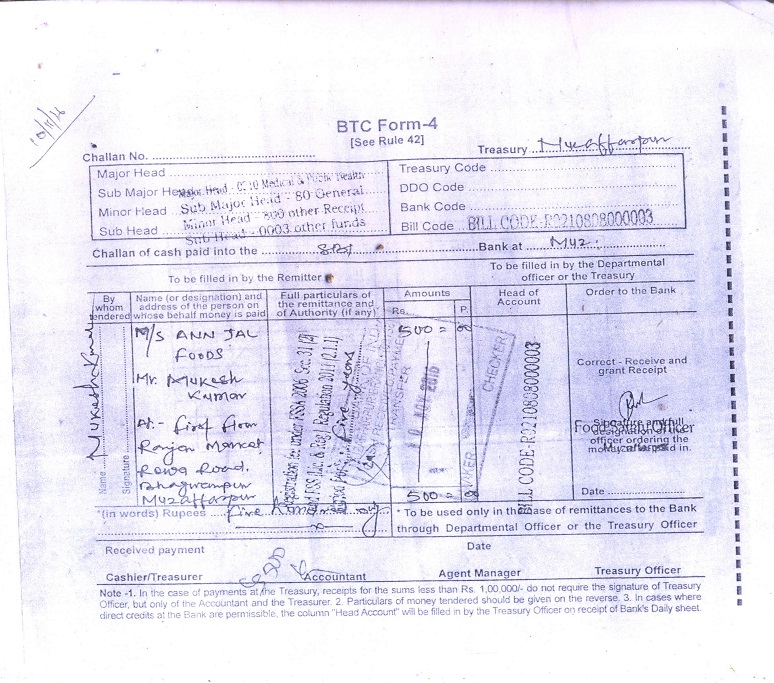 10/11/16
BTC Form-4
[See Rule 42]
Challan No.
Treasury Muzaffarpur
Major Head
Sub Major Head
Minor Head
Sub Head
Major Head - 0210 Medical & Public Health
Sub Major Head - 80 General
Minor Head - 800 other Receipt
Sub Head - 0003 other funds
Treasury Code
DDO Code
Bank Code
Bill Code BILL CODE-R0210808000003
Challan of cash paid into the SBI Bank at Muz.
To be filled in by the Remitter
To be filled in by the Departmental officer or the Treasury
By whom tendered
Name (or designation) and address of the person on whose behalf money is paid
Full particulars of the remittance and of Authority (if any)
Amounts
Rs. P.
Head of Account
Order to the Bank
Name Mukesh Kumar
Signature
M/S ANN JAL
FOODS
Mr. Mukesh
Kumar
At:- First floor
Ranjan Market
Rewa Road.
Bhagwanpur
Muzaffarpur
Registration fee under FSSA 2006 Sec. 31 (2)
and FSS Lic. & Reg. Regulation 2011 (2.1.1)
Five years
500 = 00
TRANSFER
10 NOV 2016
CHECKER
BILL CODE-R0210808000003
Correct - Receive and
grant Receipt
Signature and full
designation of the
officer ordering the
money to be paid in.
Food Safety Officer
Date
500 =
*(in words) Rupees five hundred only
* To be used only in the case of remittances to the Bank
through Departmental Officer or the Treasury Officer
Received payment
Date
Cashier/Treasurer
Accountant
Agent Manager
Treasury Officer
Note -1. In the case of payments at the Treasury, receipts for the sums less than Rs. 1,00,000/- do not require the signature of Treasury
Officer, but only of the Accountant and the Treasurer. 2. Particulars of money tendered should be given on the reverse. 3. In cases where
direct credits at the Bank are permissible, the column "Head Account" will be filled in by the Treasury Officer on receipt of Bank's Daily sheet.